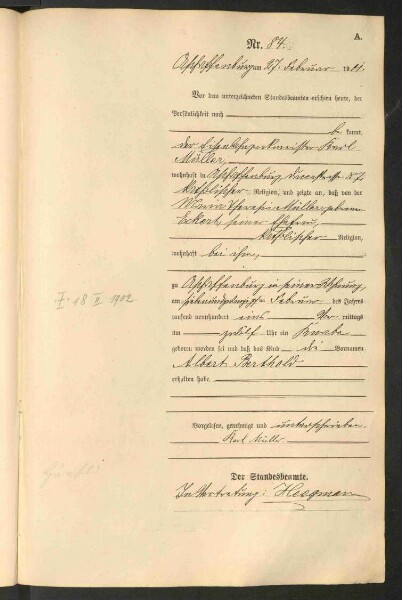 A.
Nr. 84.
Aschaffenburg am 27. Februar 1901.
Vor dem unterzeichneten Standesbeamten erschien heute, der
Persönlichkeit nach
be kannt,
der Karl
Müller,
wohnhaft in Aschaffenburg
katholischer Religion, und zeigte an, daß von der
Maria Müller, geborene
Eckert, seiner Ehefrau,
katholischer Religion,
wohnhaft bei ihm,
zu Aschaffenburg in seiner Wohnung,
am Februar des Jahres
tausend neunhundert eins mittags
um zwölf Uhr ein Knabe
geboren worden sei und daß das Kind die Vornamen
Albert Berthold
erhalten habe.
† 18 II 1902
Vorgelesen, genehmigt und unterschrieben
Karl Müller
Der Standesbeamte.
In Vertretung: